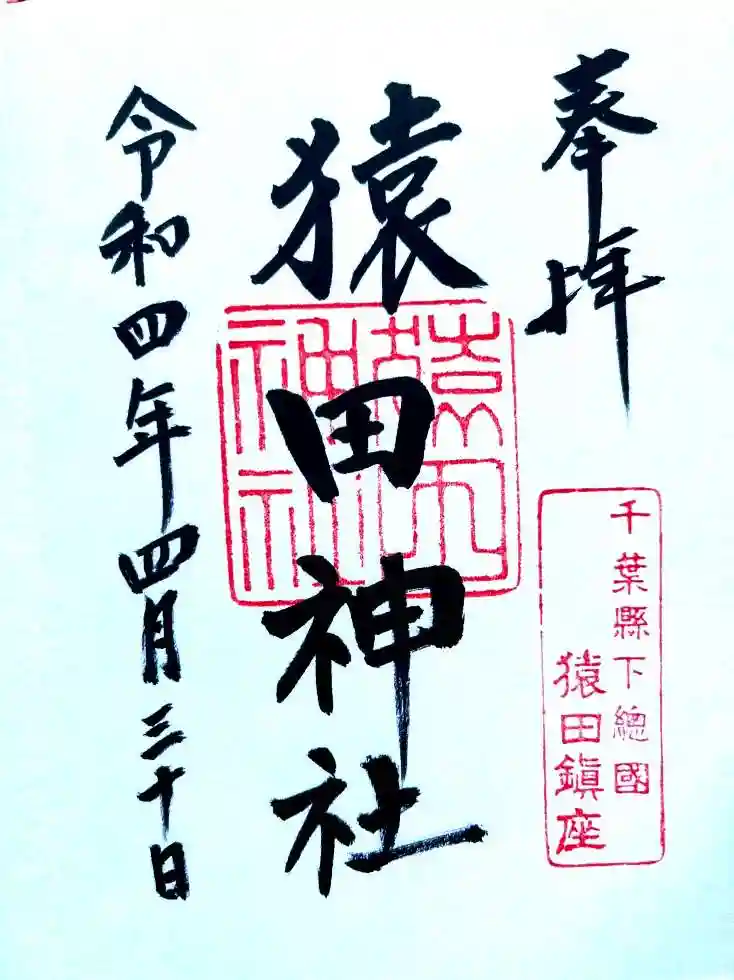 奉拝
千葉縣下總國
猿田鎭座
猿田神社
令和四年四月三十日